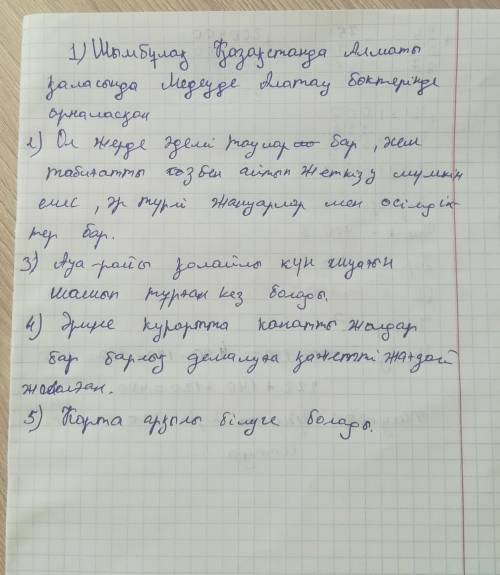 1) Шымбұлақ Қазақстанда Алматы
қаласында Медеуде Алатау бөктерінде
орналасқан
2) Ол жерде әдемі таулар бар, жем
табиғатты көзбен айтып жеткізу мүмкін
емес, әр түрлі жануарлар мен өсімдік-
тер бар.
3) Ауа-райы қолайлы күн шуағын
шашып тұрған кез болады.
4) Әрине курортта канатты жолдар
бар барлық демалуға қажетті жағдай
жасалған.
5) Карта арқылы білуге болады.